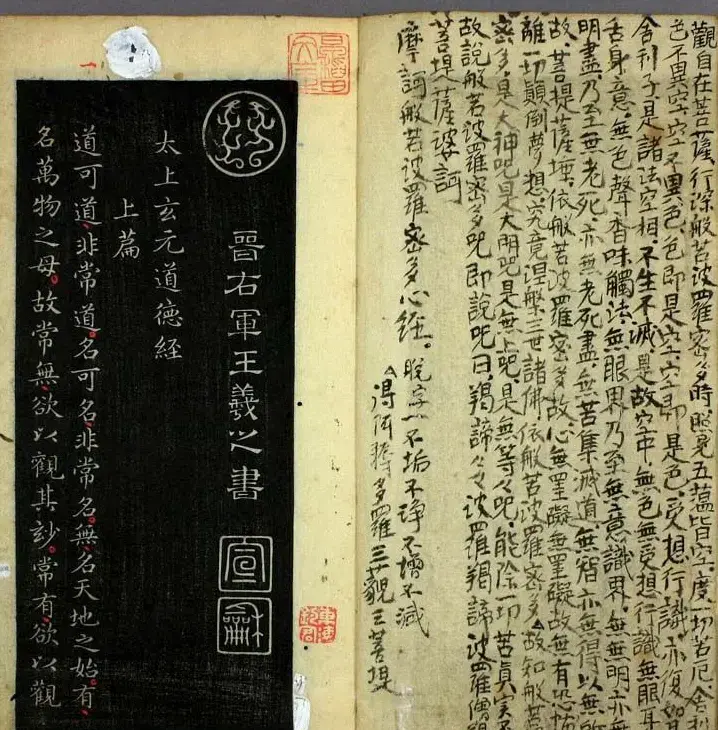 觀自在菩薩行深般若波羅密多時照見五蘊皆空度一切苦厄舍利
色不異空空不異色色即是空空即是色受想行識亦復如
舍利子是諸法空相不生不滅是故空中無色無受想行識無眼耳
舌身意無色聲香味觸法無眼界乃至無意識界無無明亦無
明盡乃至無老死亦無老死盡無苦集滅道無智亦無得以無所
故菩提薩埵依般若波羅密多故心無罣礙無罣礙故無有恐怖
離一切顛倒夢想究竟涅槃三世諸佛依般若波羅密多△故知般若
密多是大神咒是大明咒是無上咒是無等々咒能除一切苦真實不
故說般若波羅密多咒即說咒曰羯諦々々波羅羯諦波羅僧羯
菩提薩婆訶
摩訶般若波羅密多心經。脫字一不垢不淨不增不減
△得阿耨多羅三藐三菩提
晉右軍王羲之書
宣龢
太上玄元道德経
上篇
道可道非常道名可名非常名無名天地之始有
名萬物之母故常無欲以觀其妙常有欲以觀